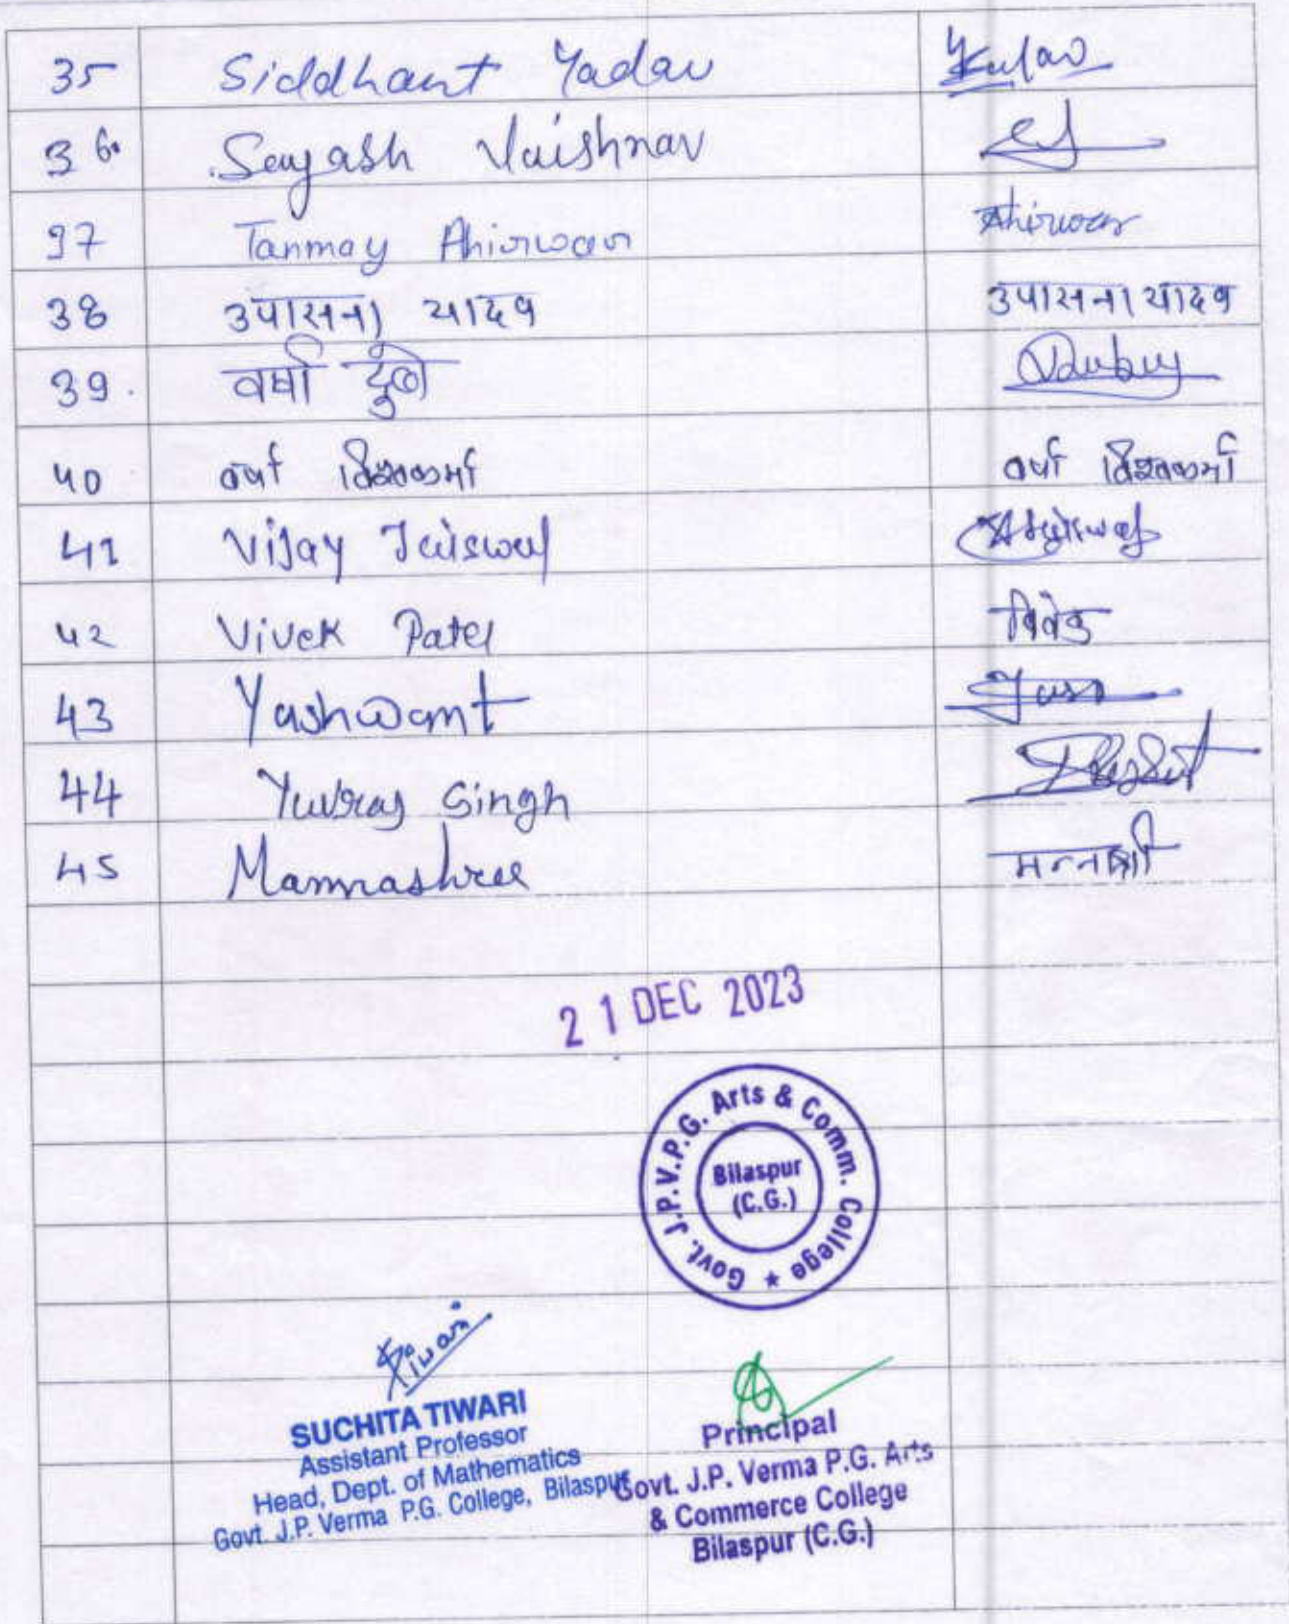 35 Siddhant Yadav Yadav
36. Suyash Vaishnav
37 Tanmay Ahirwar Ahirwar
38 उपासना यादव उपासना यादव
39. वर्षा दुबे Dubey
40 वर्षा विश्वकर्मा वर्षा विश्वकर्मा
41 Vijay Jaiswal Jaiswal
42 Vivek Patel विवेक
43 Yashwant
44 Yuvraj Singh
45 Mannashree मन्नाश्री
21 DEC 2023
Govt. J.P.V.P.G. Arts & Comm. College ★
Bilaspur
(C.G.)
Tiwari
SUCHITA TIWARI
Assistant Professor
Head, Dept. of Mathematics
Govt. J.P. Verma P.G. College, Bilaspur
Principal
Govt. J.P. Verma P.G. Arts
& Commerce College
Bilaspur (C.G.)